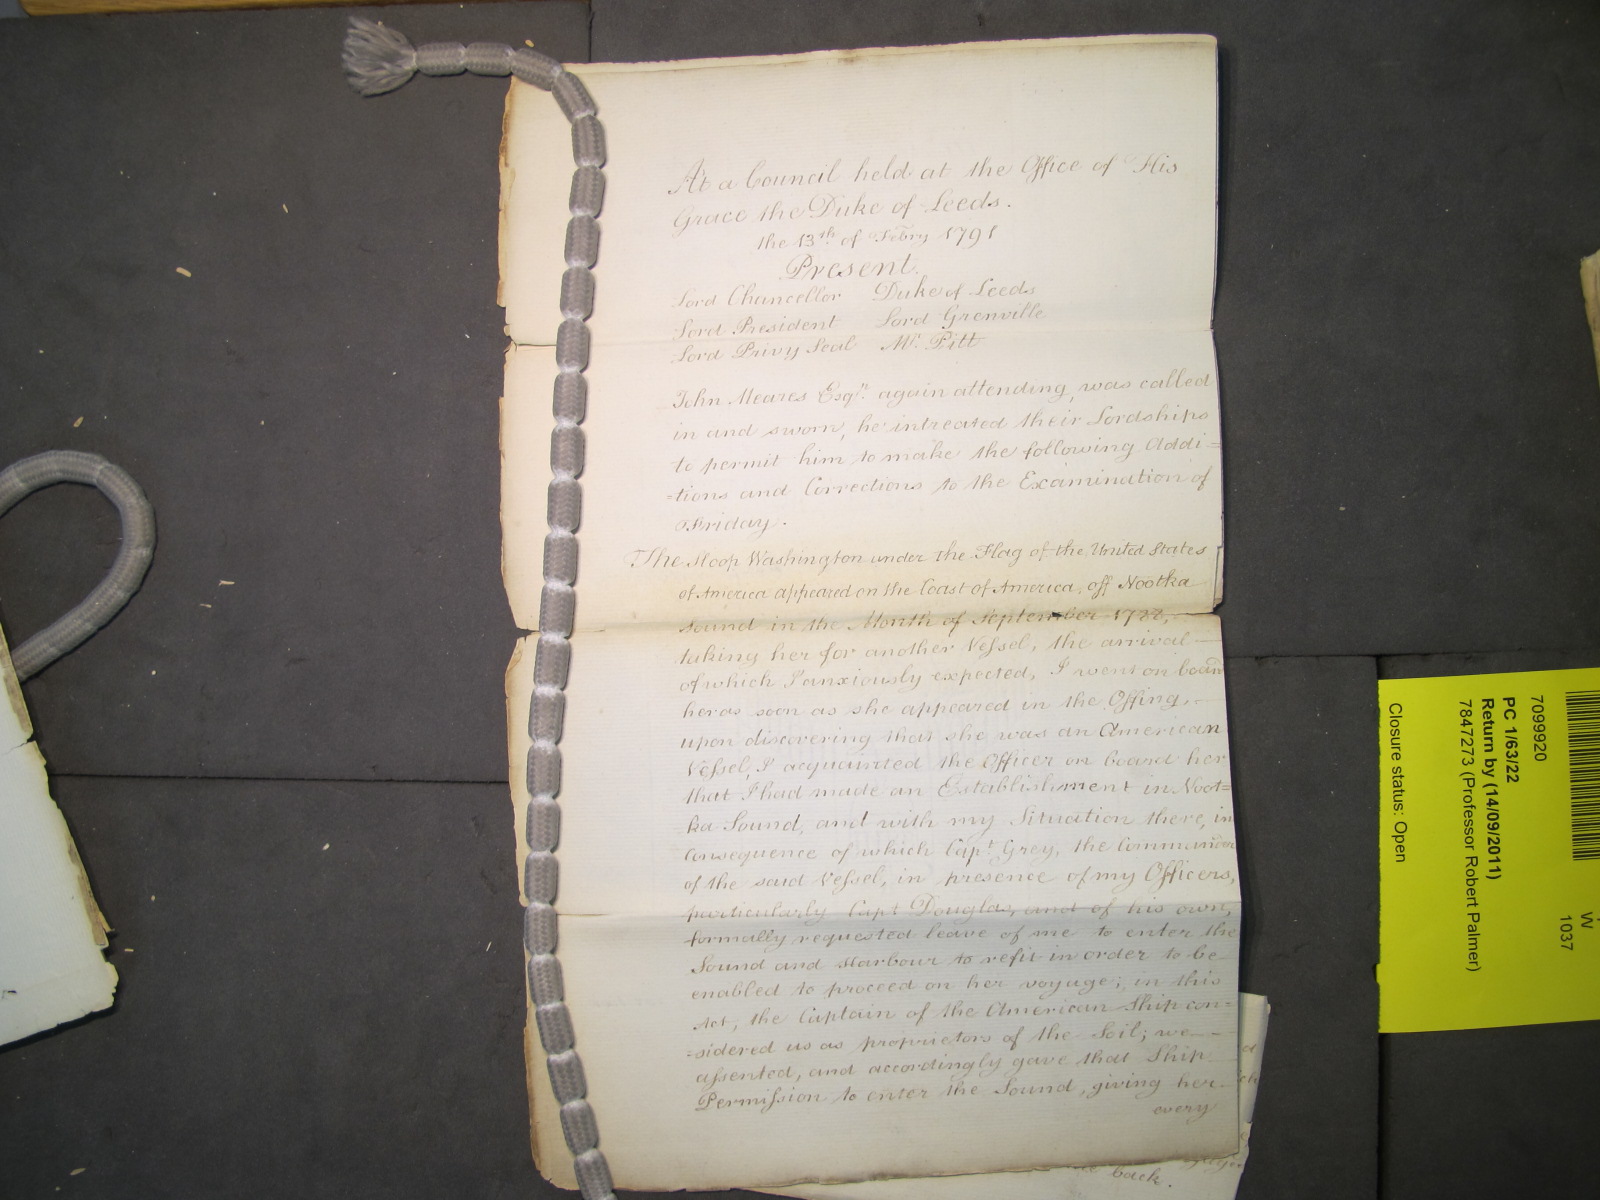 At a Council held at the Office of His
Grace the Duke of Leeds.
the 13th of Febry 1791
Present.
Lord Chancellor Duke of Leeds
Lord President Lord Grenville
Lord Privy Seal Mr. Pitt
John Meares Esqr. again attending, was called
in and sworn, he intreated their Lordships
to permit him to make the following Addi=
=tions and Corrections to the Examination of
Friday.
The Sloop Washington under the Flag of the United States
of America appeared on the Coast of America, off Nootka
sound in the Month of September 1788,
taking her for another Vessel, the arrival
of which I anxiously expected, I went on board
her as soon as she appeared in the Offing,
upon discovering that she was an American
Vessel, I acquainted the Officer on board her
that I had made an Establishment in Noot=
ka Sound, and with my Situation there, in
consequence of which Capt. Grey, the Commander
of the said Vessel, in presence of my Officers,
particularly Capt Douglas, and of his own,
formally requested leave of me to enter the
Sound and Harbour to refit in order to be
enabled to proceed on her voyage; in this
Act, the Captain of the American Ship con=
=sidered us as proprietors of the Soil; we
assented, and accordingly gave that Ship
Permission to enter the Sound, giving her
every
back.
7099920
PC 1/63/22
Return by (14/09/2011)
7847273 (Professor Robert Palmer)
Closure status: Open
W
1037